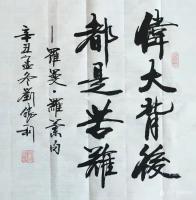 偉大背後
都是苦難
——羅曼·羅蘭句
辛丑孟冬劉